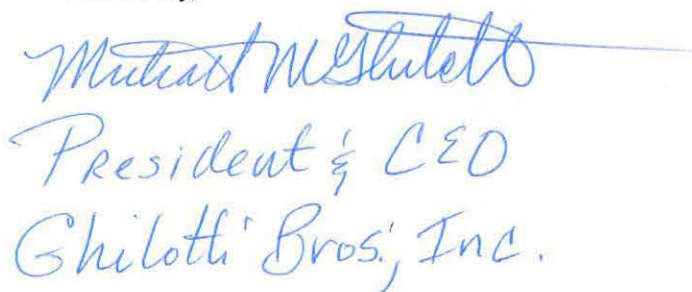 Michael M Ghilotti
President & CEO
Ghilotti Bros., Inc.